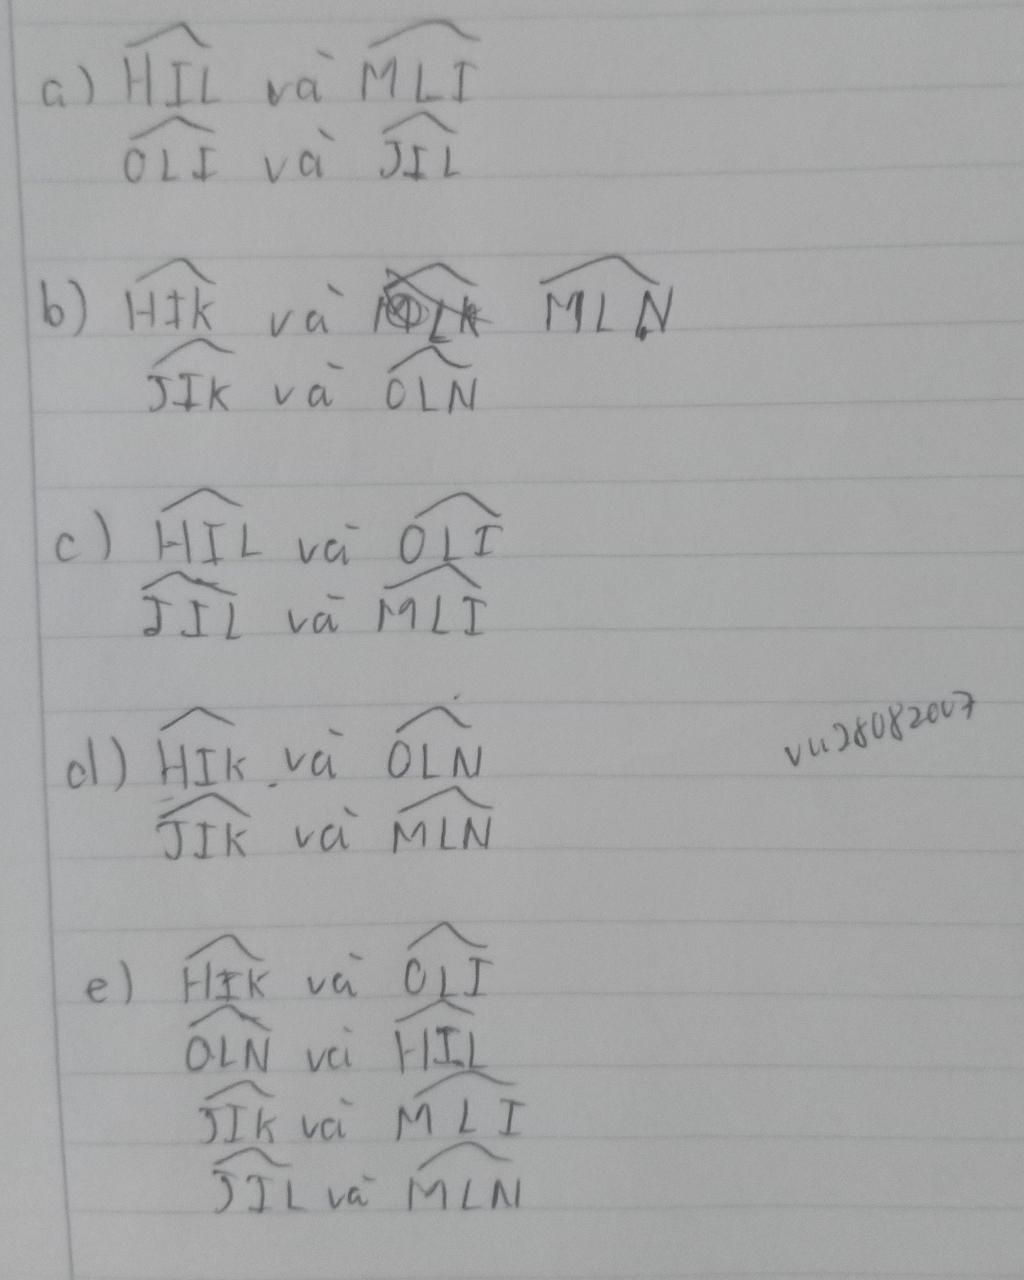 a) HIL và MLI
OLI và JIL
b) HIK và MLN
JIK và OLN
c) HIL và OLI
JIL và MLI
d) HIK và OLN
vu28082007
JIK và MLN
e) HIK và OLI
OLN và HIL
JIK và MLI
JIL và MLN